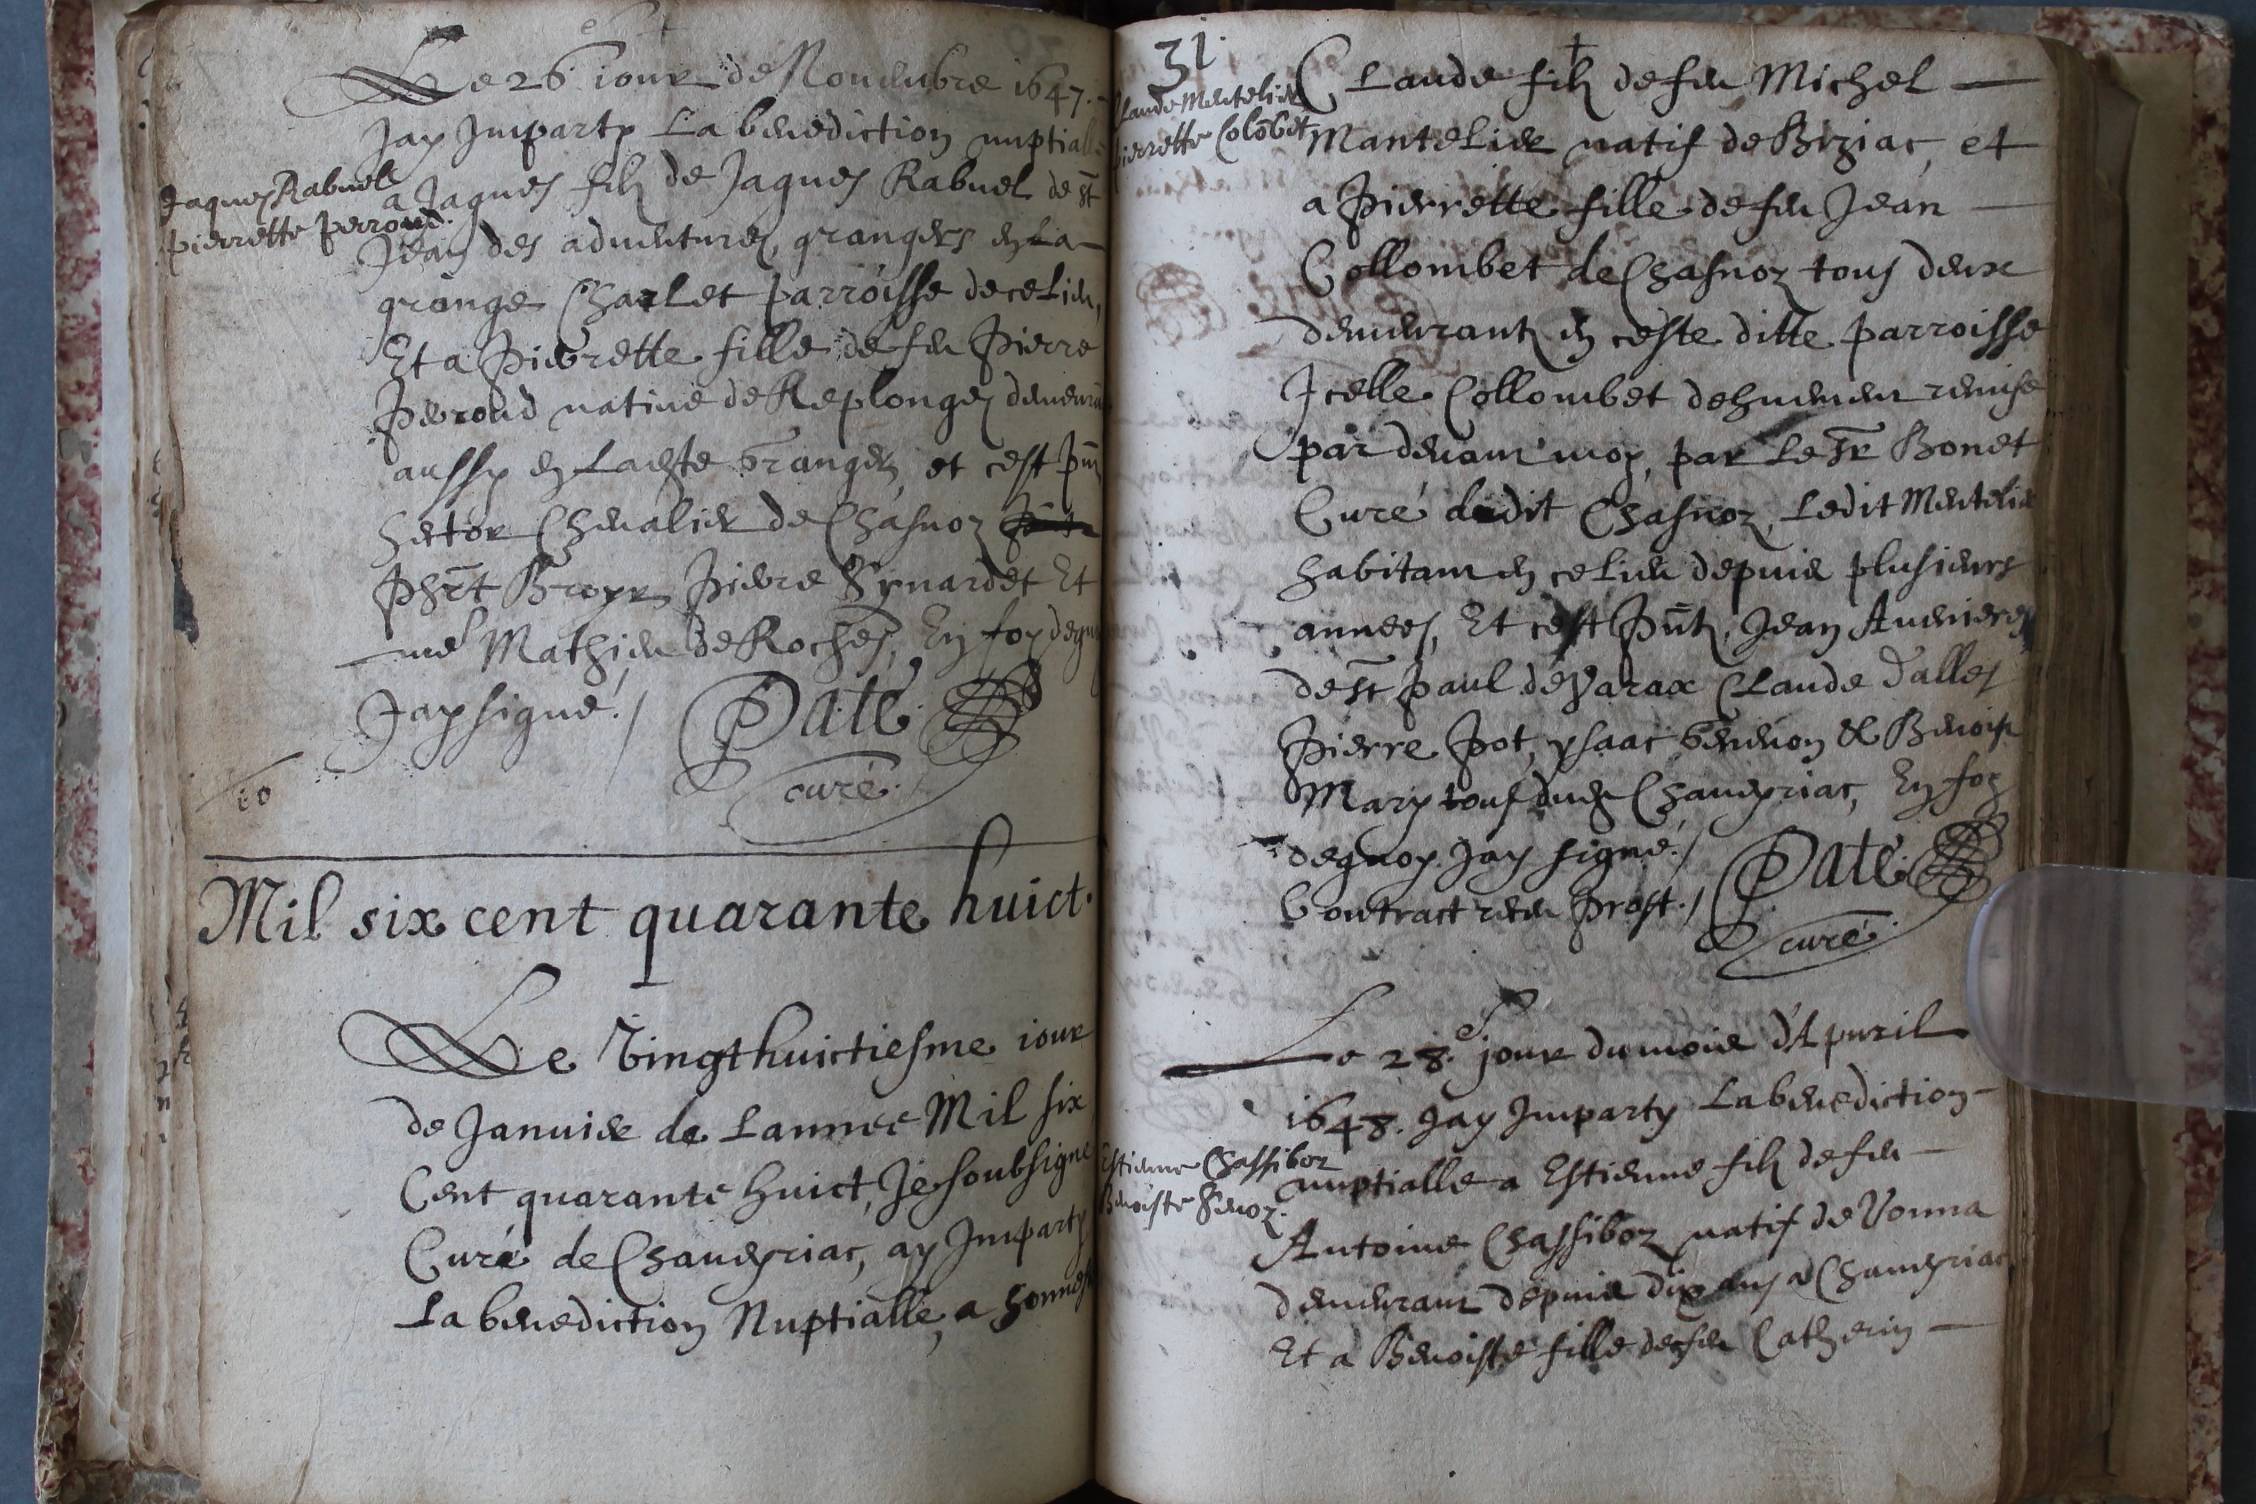 Le 26 iour de Nouembre 1647.
Jay Imparty La benediction nuptialle
Jaques Rabuel
pierrette perroud.
a Jaques filz de Jaques Rabuel de St
Jean des aduentures, grangers en La
grange Charlet parroisse de ce Lieu,
Et a Pierrette fille de feu Pierre
Perroud natiue de Replonges demeurãt
aussy en Ladte Grange, et cest pñt
hector Cheualier de Chasnoz
Phãt Broyer, Pierre Synardet Et
me Mathieu de Roches, En foy dequoy
Jay signé./ Paté
curé.
10
Mil six cent quarante huict.
Le Vingthuictiesme iour
de Januier de Lannee Mil six
Cent quarante huict, Je soubsigne
Curé de Chaueyriac, ay Imparty
La benediction Nuptialle, a honneste
31.
Claude Mentelier
pierrette Colõbet
Claude filz de feu Michel
Mantelier natif de Biziac, et
a Pierrette fille de feu Jean
Collombet de Chasnoz tous deux
demeurantz en ceste ditte parroisse
Icelle Collombet dehuement remise
par deuant moy, par le Sr Bonet
Curé dudit Chasnoz, Ledit Mentelier
habitant en ce Lieu depuis plusieurs
annees, Et cest pñtz, Jean Auenieres
de St Paul de Varax Claude Dalles
Pierre Pot, ysaac Geneuon & Benoist
Mary tous dudt Chaueyriac, En foy
dequoy Jay signé./ Paté
Contract receu Prost./ curé.
Le 28.e jour du mois d'Apuril
1648. Jay Imparty La benediction
Estienne Chassiboz
Benoiste Seuoz.
nuptialle a Estienne filz de feu
Antoine Chassiboz natif de Vonna
demeurant depuis dix ans a Chaueyriac
Et a Benoiste fille de feu Catherin